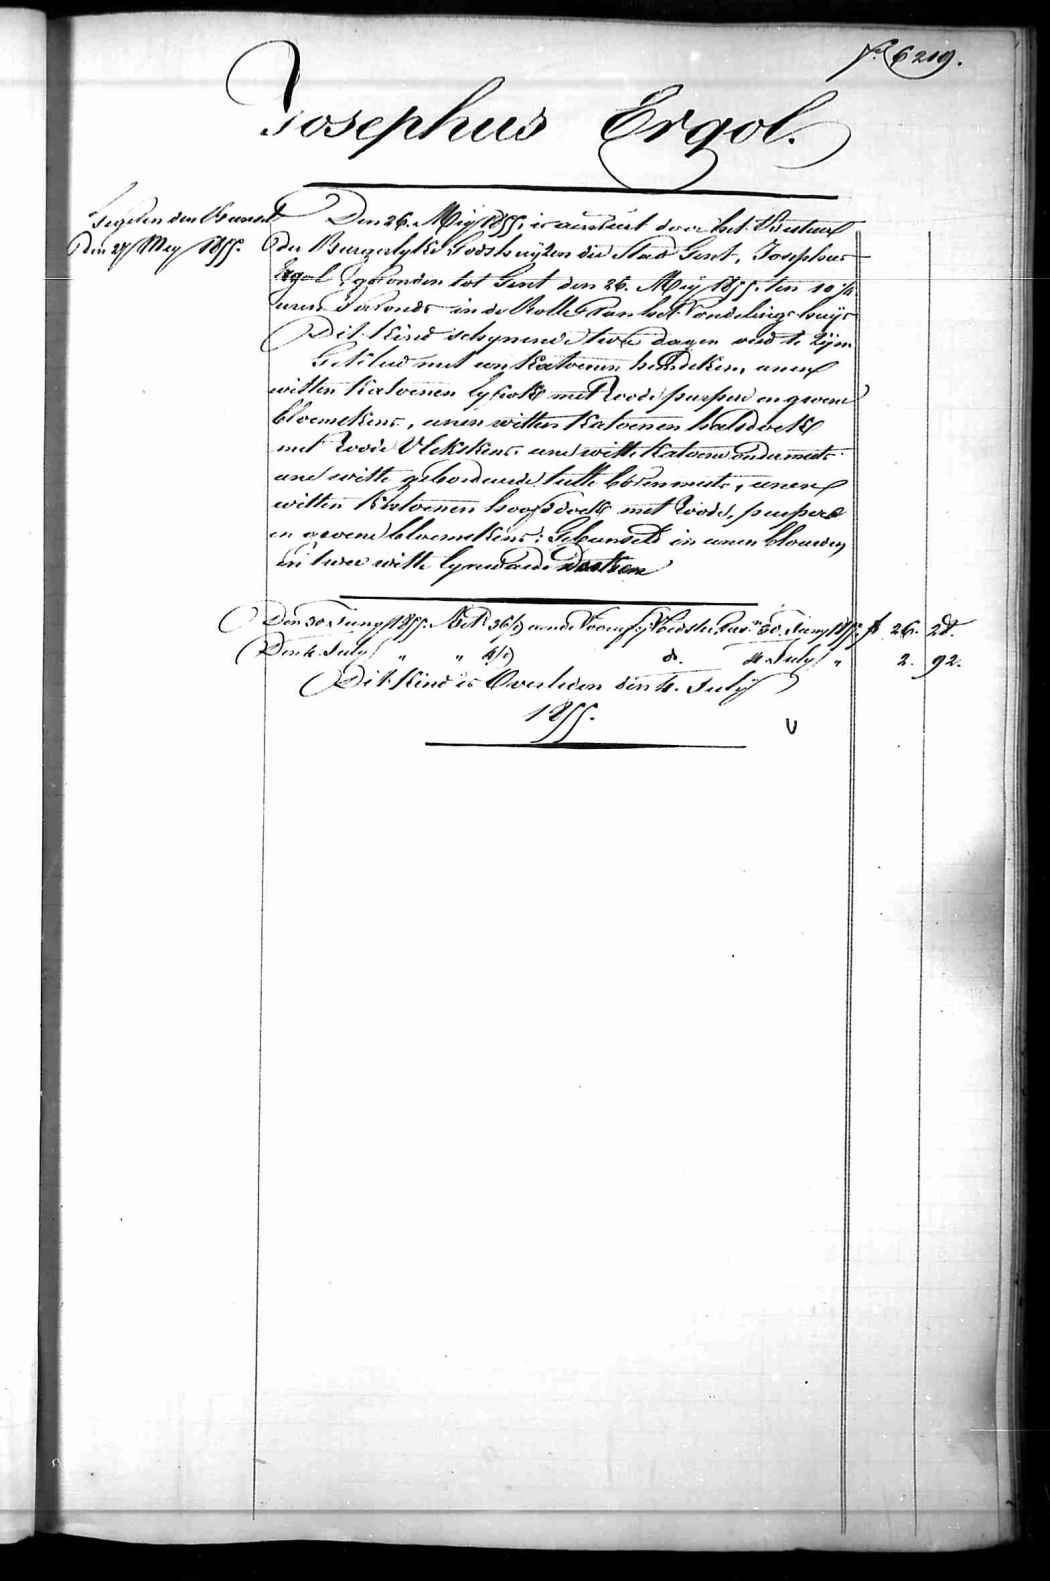 f.° 6219.
Josephus Ergol.
den 27 Mey 1855.
Den 26. Meij 1855, is aanveert door het Bestuur
der Burgerlyke Godshuijzen der Stad Gent, Josephus
Ergol, gevonden tot Gent den 26. Meij 1855. ten 10 ½
uren S'avonds in de Rolle van het Vondelingshuijs
Dit kind schynende twee dagen oud te zijn
Gekleed met een katoenen hemdeken, eenen
witten katoenen lyfrok met roode purpere en groene
bloemekens, eenen witten katoenen halsdoek
met roode Vlekskens, eene witte katoene ondermuts
eene witte geborduurde tulle bovenmuts, eenen
witten katoenen hoofddoek met roode, purpere
en groene bloemekens: Gebunseld in eenen blouwen
en twee witte lynwaede doeken
Den 30 Juny 1855. 36/ aen de Voedster 30. Juny 1855. f 26. 28.
Den 4. July " " 4/ d°. 4 July " 2. 92.
Dit kind is Overleden den 4. July
1855.
V